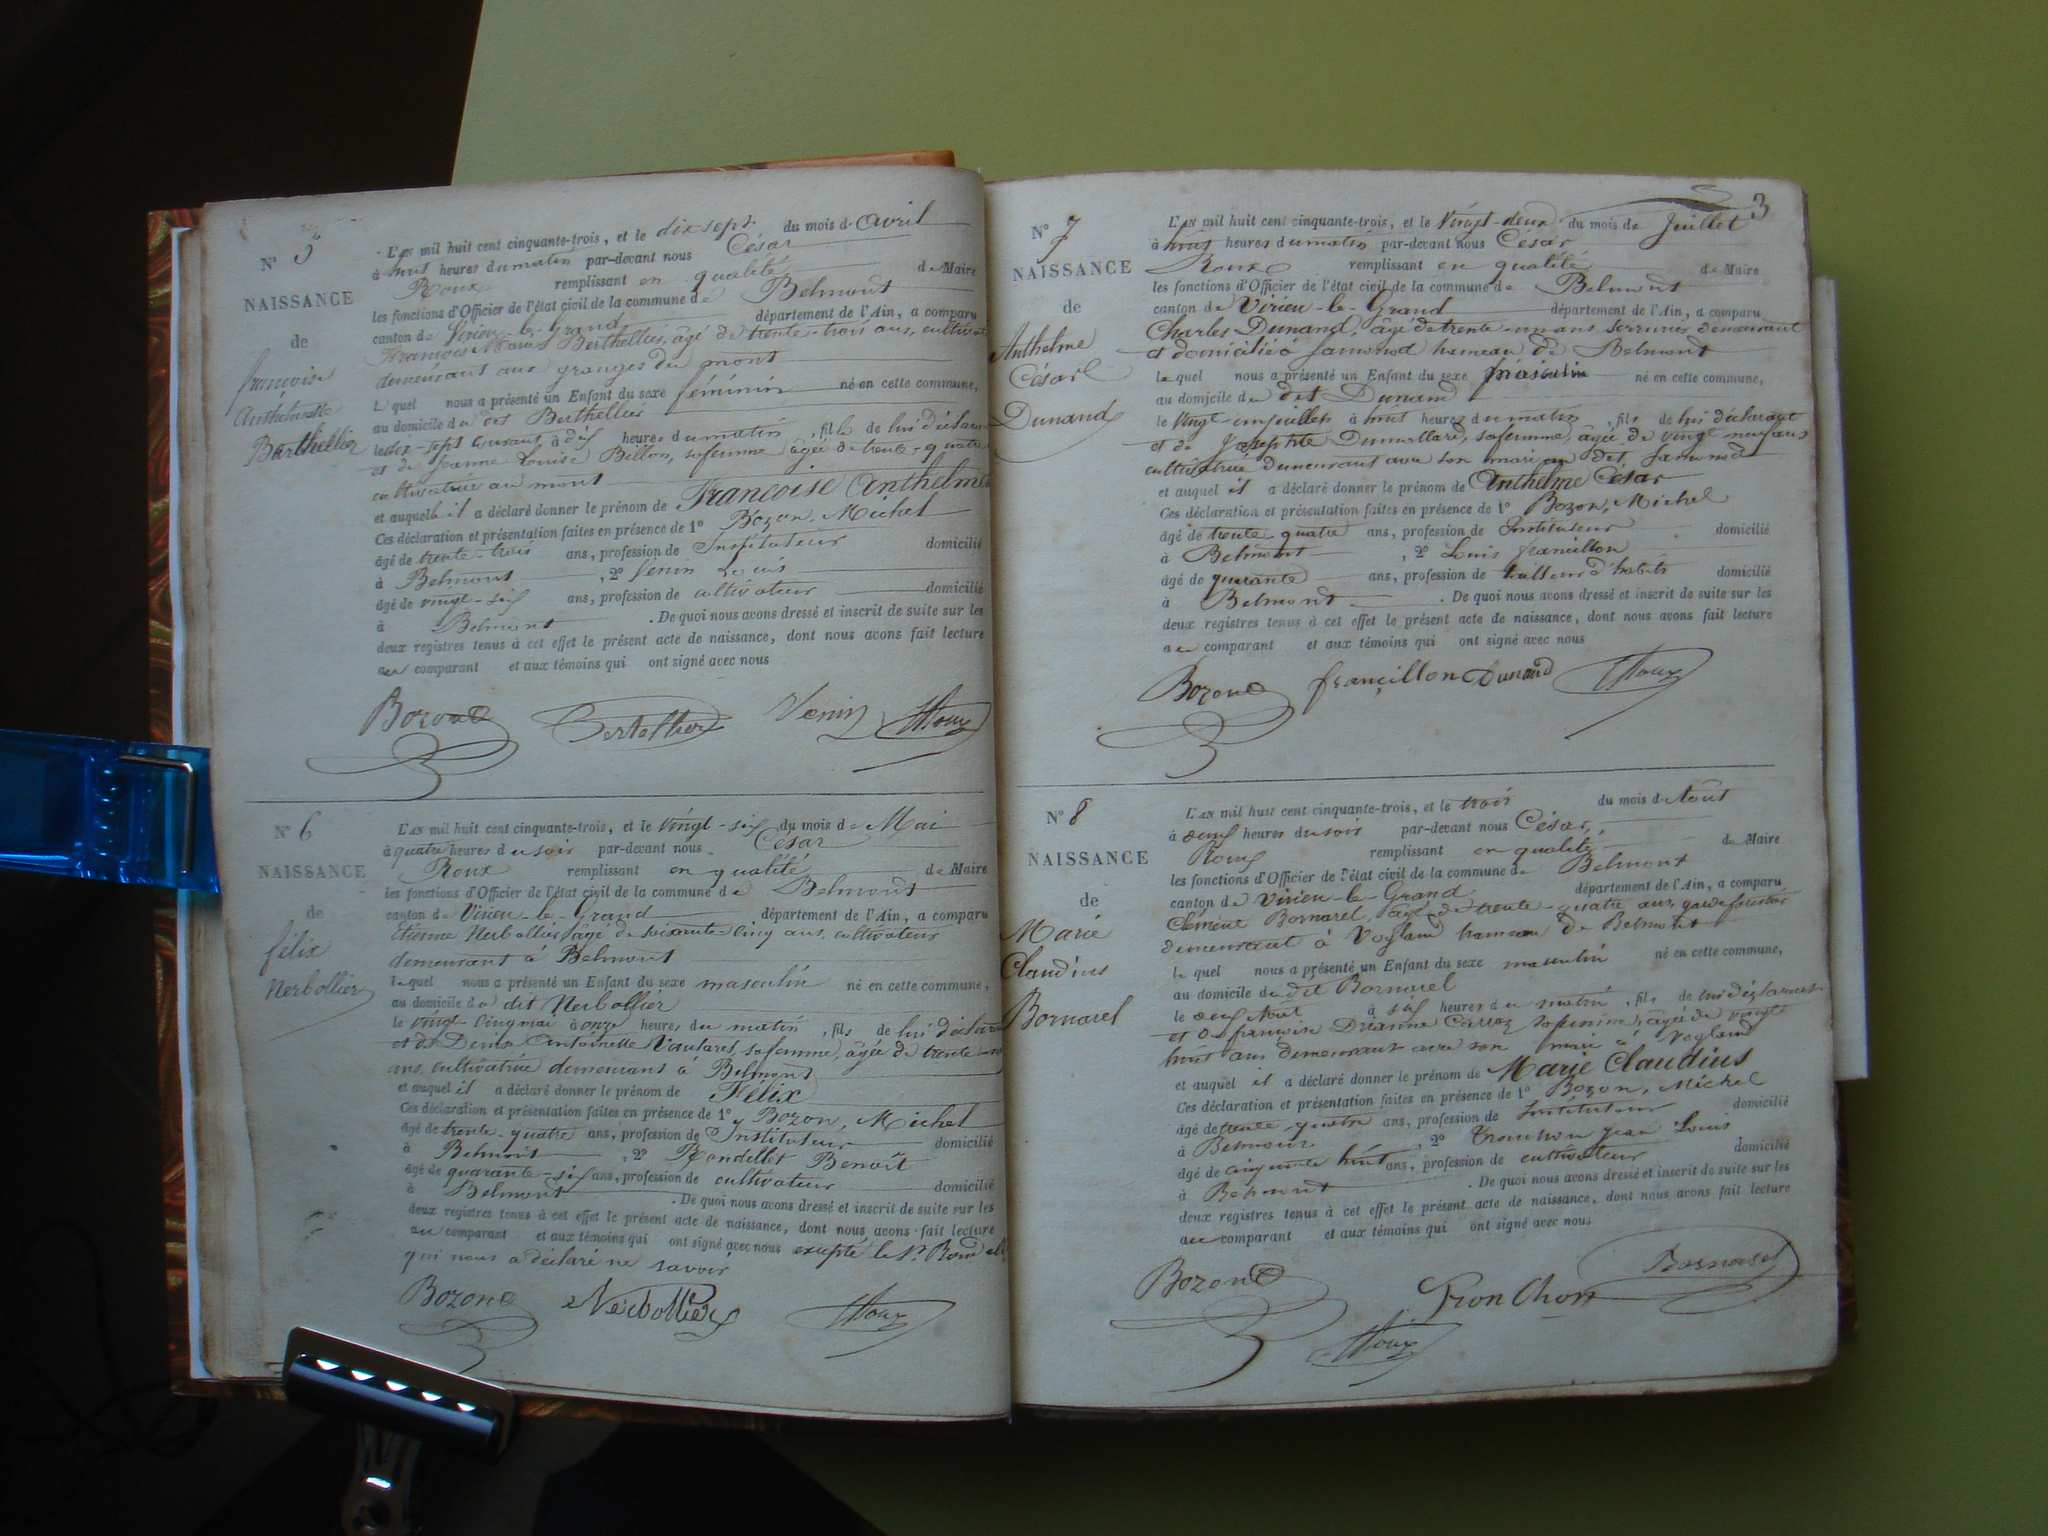 N° 5
NAISSANCE
de
françoise
Anthelmette
Barthellier
L'AN mil huit cent cinquante-trois, et le dix sept du mois d'avril
à huit heures du matin par-devant nous César
Roux remplissant en qualité de Maire
les fonctions d'Officier de l'état civil de la commune de Belmont
canton de Virieu-le-Grand département de l'Ain, a comparu
François Marie Berthellier, âgé de trente-trois ans, cultivat
demeurant aux granges du mont
lequel nous a présenté un Enfant du sexe féminin né en cette commune,
au domicile du dit Berthellier
le dix-sept courant, à dix heures du matin, fille de lui déclarant
et de Jeanne Louise Billon, sa femme, âgée de trente-quatre
cultivatrice au mont
et auquel il a déclaré donner le prénom de Francoise Anthelme
Ces déclaration et présentation faites en présence de 1° Bozon, Michel
âgé de trente-trois ans, profession de Instituteur domicilié
à Belmont, 2° Venin Louis
âgé de vingt-six ans, profession de cultivateur domicilié
à Belmont. De quoi nous avons dressé et inscrit de suite sur les
deux registres tenus à cet effet le présent acte de naissance, dont nous avons fait lecture
au comparant et aux témoins qui ont signé avec nous
Bozon Bertellier Venin Roux
N° 6
NAISSANCE
de
félix
Nerbollier
L'AN mil huit cent cinquante-trois, et le vingt-six du mois de Mai
à quatre heures du soir par-devant nous César
Roux remplissant en qualité de Maire
les fonctions d'Officier de l'état civil de la commune de Belmont
canton de Virieu-le-Grand département de l'Ain, a comparu
Etienne Nerbollier, âgé de soixante-cinq ans, cultivateur
demeurant à Belmont
lequel nous a présenté un Enfant du sexe masculin né en cette commune,
au domicile du dit Nerbollier
le vingt-cinq mai à onze heures du matin, fils de lui déclara
et de Denise Antoinette Vautaret, sa femme, âgée de trente
ans, cultivatrice demeurant à Belmont
et auquel il a déclaré donner le prénom de Félix
Ces déclaration et présentation faites en présence de 1° Bozon, Michel
âgé de trente-quatre ans, profession de Instituteur domicilié
à Belmont, 2° Rondellet Benoît
âgé de quarante-six ans, profession de cultivateur domicilié
à Belmont. De quoi nous avons dressé et inscrit de suite sur les
deux registres tenus à cet effet le présent acte de naissance, dont nous avons fait lecture
au comparant et aux témoins qui ont signé avec nous excepté le Sr. Rondell
qui nous a déclaré ne savoir
Bozon Nerbollier Roux
3
N° 7
NAISSANCE
de
Anthelme
César
Dunand
L'AN mil huit cent cinquante-trois, et le vingt-deux du mois de Juillet
à huit heures du matin par-devant nous César
Roux remplissant en qualité de Maire
les fonctions d'Officier de l'état civil de la commune de Belmont
canton de Virieu-le-Grand département de l'Ain, a comparu
Charles Dunand, âgé de trente-un ans serrurier demeurant
et domicilié à Samonod hameau de Belmont
lequel nous a présenté un Enfant du sexe masculin né en cette commune,
au domicile du dit Dunand
le vingt-un juillet à huit heures du matin, fils de lui déclarant
et de Josephte Dumollard, sa femme, âgée de vingt neuf ans
cultivatrice demeurant avec son mari au dit Samonod
et auquel il a déclaré donner le prénom de Anthelme César
Ces déclaration et présentation faites en présence de 1° Bozon, Michel
âgé de trente-quatre ans, profession de Instituteur domicilié
à Belmont, 2° Louis francillon
âgé de quarante ans, profession de tailleur d'habits domicilié
à Belmont. De quoi nous avons dressé et inscrit de suite sur les
deux registres tenus à cet effet le présent acte de naissance, dont nous avons fait lecture
au comparant et aux témoins qui ont signé avec nous
Bozon françillon Dunand Roux
N° 8
NAISSANCE
de
Marie
Claudius
Bornarel
L'AN mil huit cent cinquante-trois, et le trois du mois d'Aout
à deux heures du soir par-devant nous César,
Roux remplissant en qualité de Maire
les fonctions d'Officier de l'état civil de la commune de Belmont
canton de Virieu-le-Grand département de l'Ain, a comparu
Clément Bornarel, âgé de trente-quatre ans, garde forestier
demeurant à Vogland hameau de Belmont
lequel nous a présenté un Enfant du sexe masculin né en cette commune,
au domicile du dit Bornarel
le deux Aout à six heures du matin, fils de lui déclarant
et de françoise sa femme, âgée de vingt
huit ans demeurant avec son mari à Vogland
et auquel il a déclaré donner le prénom de Marie Claudius
Ces déclaration et présentation faites en présence de 1° Bozon, Michel
âgé de trente-quatre ans, profession de Instituteur domicilié
à Belmont, 2° Tronchon Jean Louis
âgé de cinquante huit ans, profession de cultivateur domicilié
à Belmont. De quoi nous avons dressé et inscrit de suite sur les
deux registres tenus à cet effet le présent acte de naissance, dont nous avons fait lecture
au comparant et aux témoins qui ont signé avec nous
Bozon TronChon Bornarel
Roux